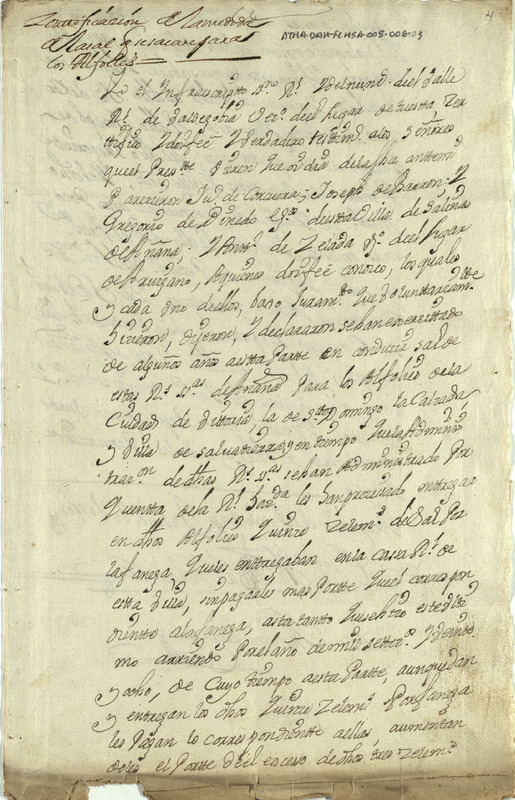 Zerttificazion de la medida
de la sal q se saca r para
los Alfolies
ATHA-DAH-FCHSA-008-006-03
4
Yo el Infrascriptto Sno Rl Y del num. del Valle
Rl de Valdegobia Vezo del lugar de tuesta Zer
tifico doi fee Y Verdadero testtim. a los Señores
que el Pressente Vieren que oi dia de la fha antte mi
Parezieron Ju. de Corcuera; Joseph de Barron; Y
Gregorio de Pinedo vzs de esta Villa de Salinas
de Añana; Y Antt. de Zelada Vo del lugar
de Aruizano, A quienes doi fee conozco, los quales
y cada uno de ellos, bajo Juramto que Voluntariamte
hizieron, dijeron, Y declararon se han exerzittado
de algunos años a estta Partte en conduzir Sal de
estas Rs Sas de Añana Para los Alfolies de la
Ciudad de Vittoria la de Stto Domingo la Calzada
y Villa de Salvatierra, y en tiempo que la Adminis
trazon de dhas Rs Sas se han Administrado Por
Quentta de la Rl Hazda les han prezisado enttregar
en dhos Alfolies quinze Zelems de Sal Por
la fanega que les enttregaban en la Cassa Rl de
estta Villa, sin pagarles mas Portte que el correspon
dientte a la fanega, asta tantto que se hizo estte ulti
mo arriendo Por el año de mill settezs Y Veinte
y ocho, de cuyo tiempo a esta Partte, aunque dan
y entregan los dhos quinze Zelems Por fanega
les Pagan lo correspondientte a ellas, aumentan
doles el Portte del exceso de dhos tres Zelems